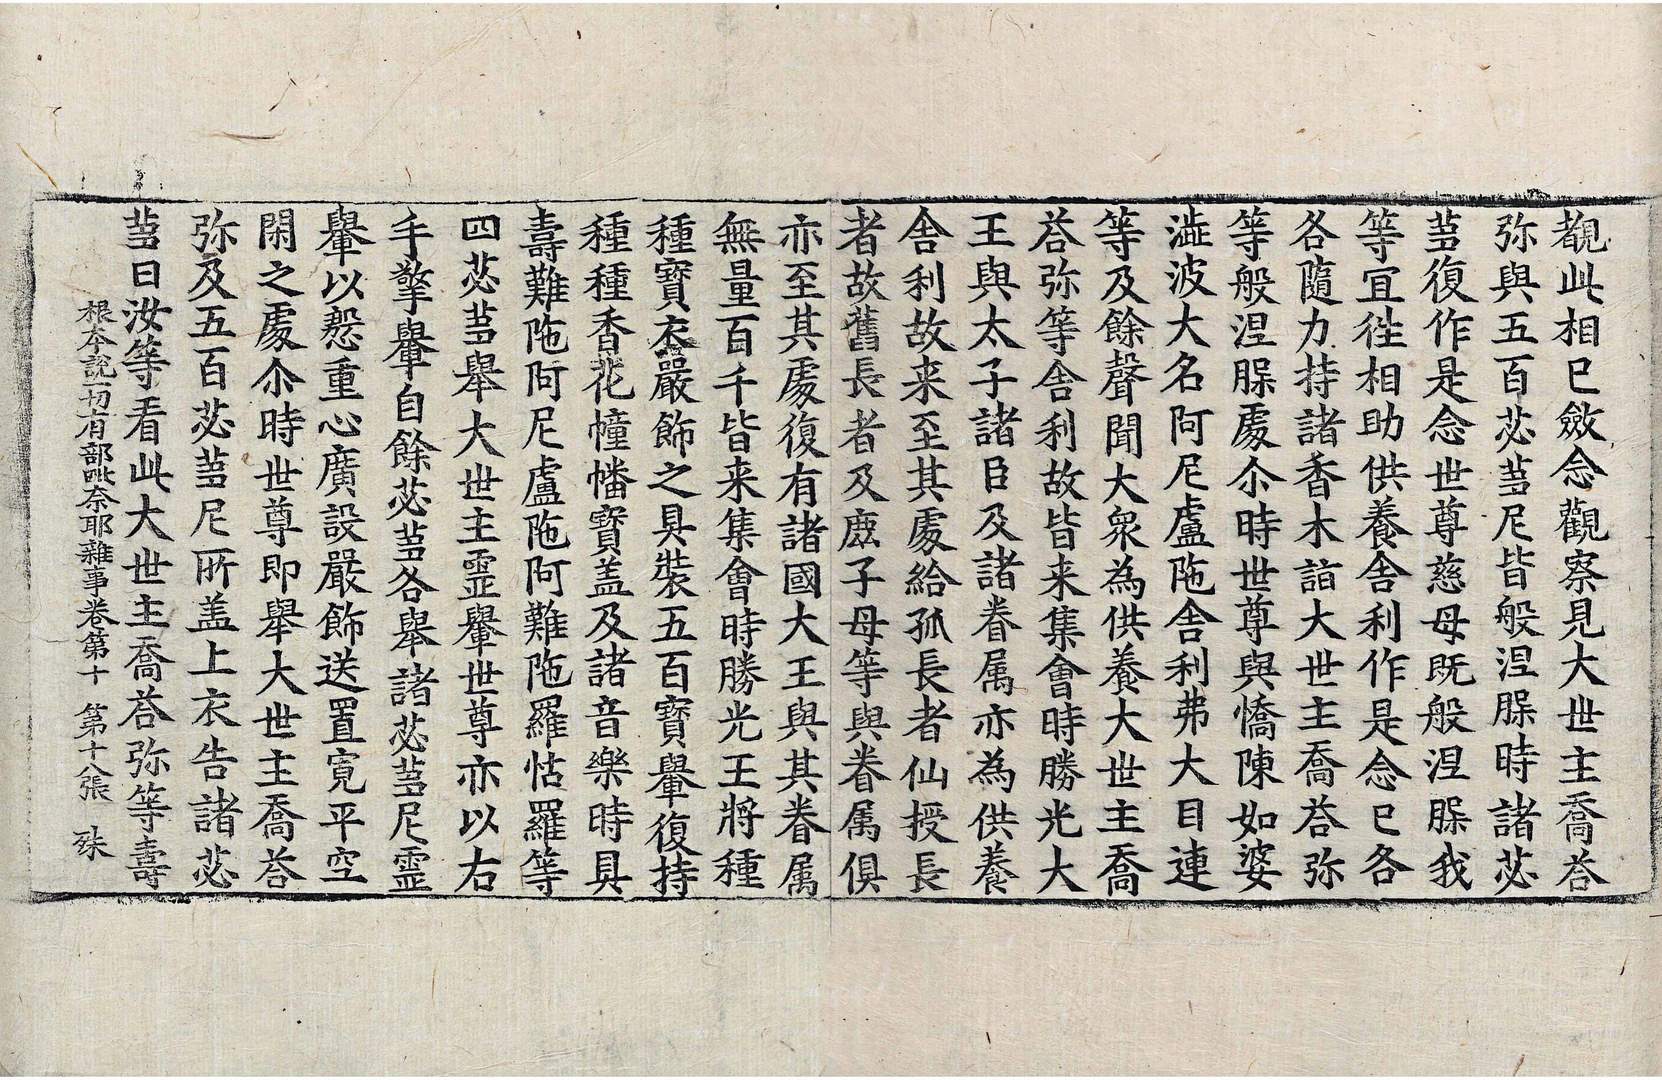 覩此相已斂念觀察見大世主喬荅
弥與五百苾芻尼皆般涅脲時諸苾
芻復作是念世尊慈母既般涅脲我
等冝徃相助供養舍利作是念已各
各隨力持諸香木詣大世主喬荅弥
等般涅脲處尒時世尊與憍陳如婆
澁波大名阿尼盧陁舍利弗大目連
等及餘聲聞大衆為供養大世主喬
荅弥等舍利故皆来集會時勝光大
王與太子諸臣及諸眷属亦為供養
舍利故来至其處給孤長者仙授長
者故舊長者及鹿子母等與眷属俱
亦至其處復有諸國大王與其眷属
無量百千皆来集會時勝光王將種
種寶衣嚴飾之具裝五百寶轝復持
種種香花幢幡寶盖及諸音樂時具
壽難陁阿尼盧陁阿難陁羅怙羅等
四苾芻舉大世主靈轝世尊亦以右
手擎轝自餘苾芻各舉諸苾芻尼靈
轝以慇重心廣設嚴飾送置寬平空
閑之處尒時世尊即舉大世主喬荅
弥及五百苾芻尼所盖上衣告諸苾
芻曰汝等看此大世主喬荅弥等壽
根本說一切有部毗奈耶雜事卷第十 第十八張 殊